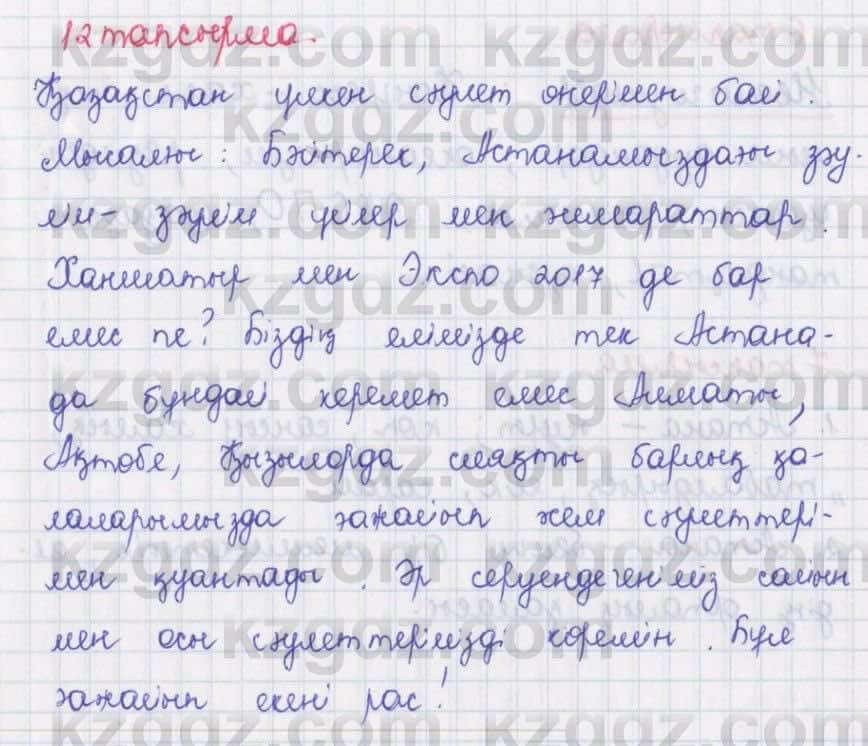 12 тапсырма.
Қазақстан үлкен сәулет өнерімен бай.
Мысалы: Бәйтерек, Астанамыздағы зәу-
лім-зәулім үйлер мен жимараттар.
Ханшатыр мен Экспо 2017 де бар
емес пе? Біздің елімізде тек Астана-
да бұндай керемет емес Алматы,
Ақтөбе, Қызылорда сияқты барлық қа-
лаларымызда ғажайып жем сәулеттері-
мен қуантады. Әр серуендегеніміз сайын
мен осы сәулеттерімізді көремін. Бұл
ғажайып екені рас!
kzgdz.com